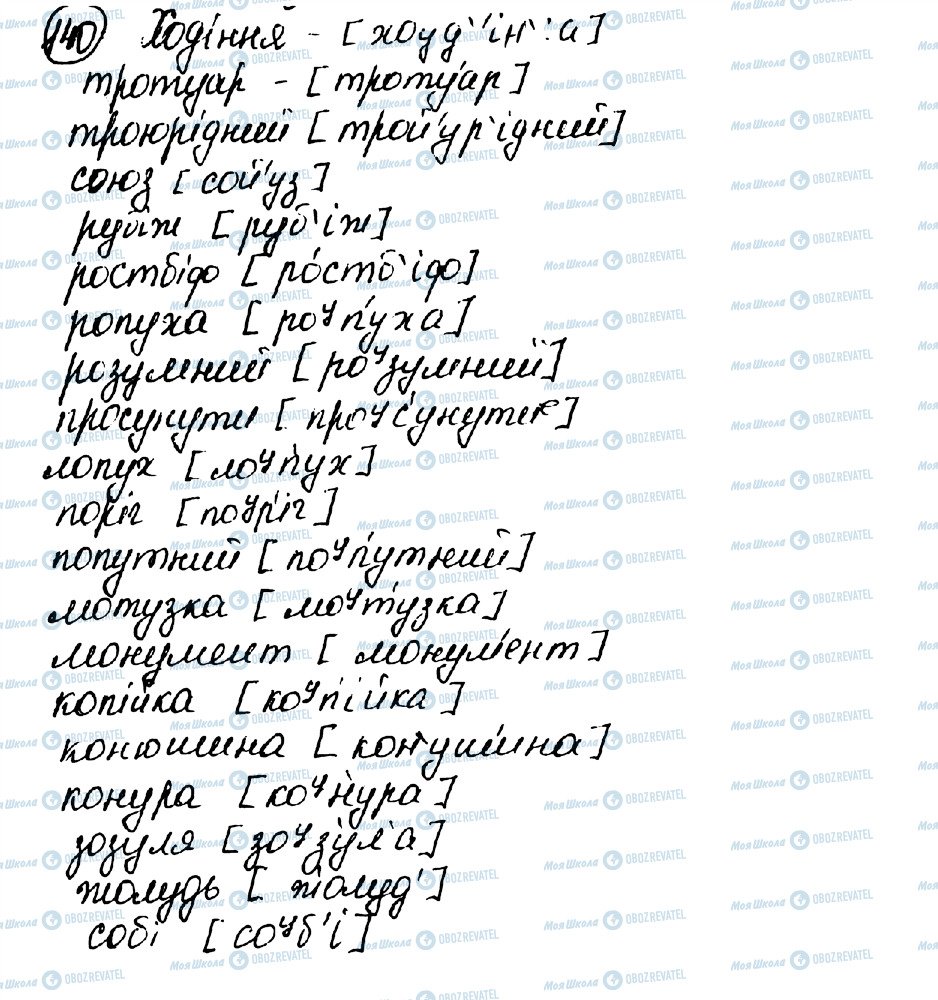 140 Ходіння - [хоуд'ін':а]
тротуар - [тротуа́р]
троюрідний [трой'ур'ідний]
союз [сой'уз]
рубіж [руб'іж]
ростбіф [ро́стб'іф]
ропуха [роᵘпуха]
розумний [роᵘзумний]
просунути [проᵘсунутиᵉ]
лопух [лоᵘпух]
поріг [поᵘріг]
попутний [поᵘпутний]
мотузка [моᵘтузка]
монумент [монумент]
копійка [коᵘпійка]
конюшина [кон'ушина]
конура [коᵘнура]
зозуля [зоᵘзул'а]
жолудь [жолуд']
собі [соᵘб'і]